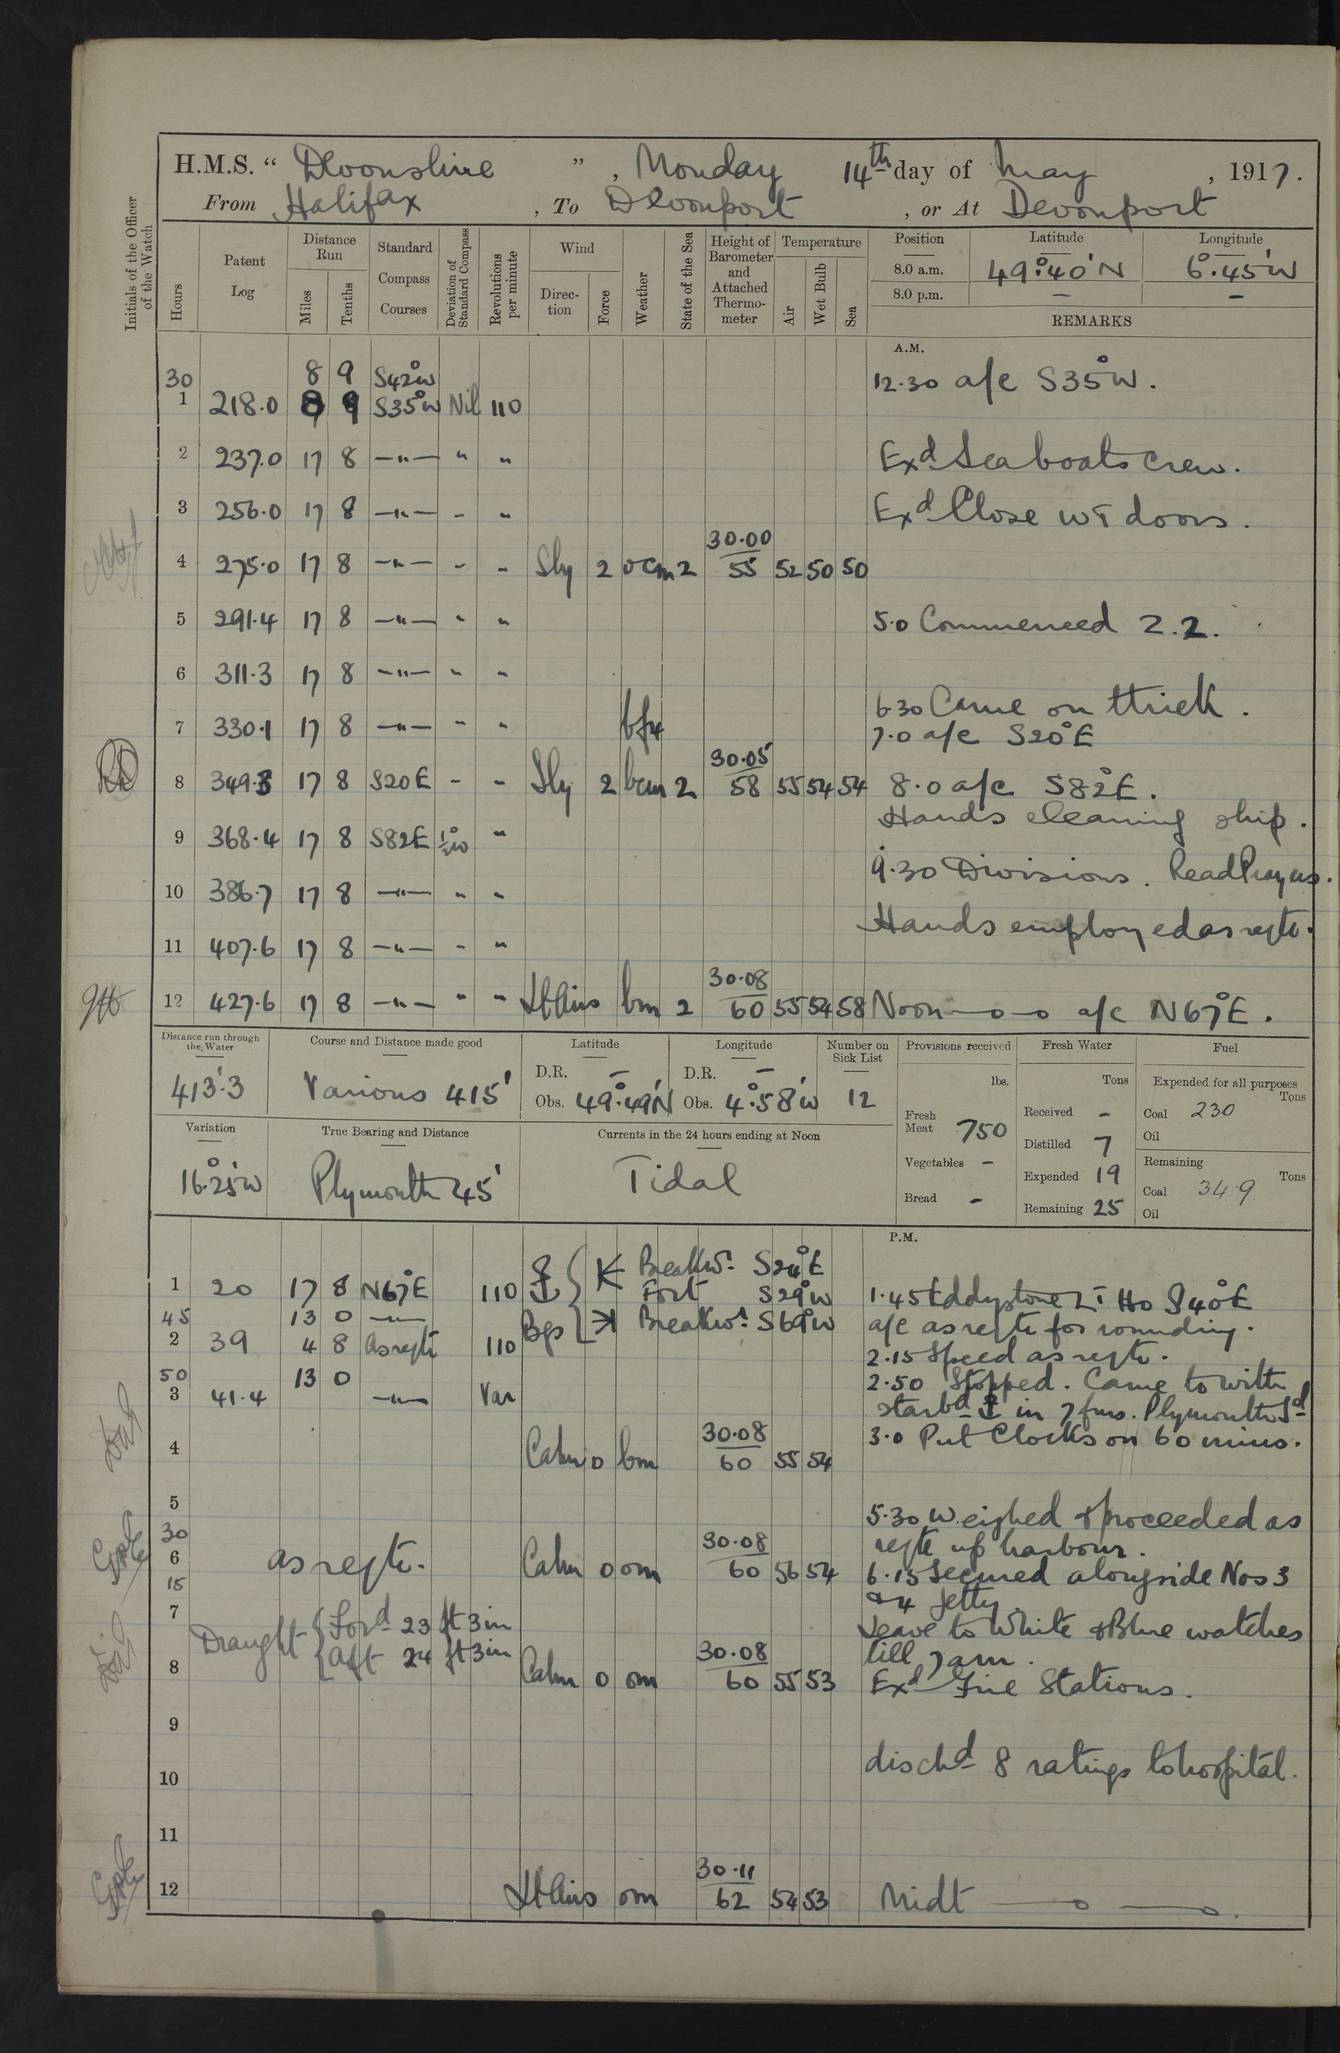 H.M.S. “ Devonshire ” , Monday 14th day of May , 1917.
From Halifax , To Devonport , or At Devonport
Initials of the Officer of the Watch
Hours Patent Log Distance Run Miles Tenths Standard Compass Courses Deviation of Standard Compass Revolutions per minute Wind Direction Force Weather State of the Sea Height of Barometer and Attached Thermometer Temperature Air Wet Bulb Sea Position Latitude Longitude
8.0 a.m. 49°.40'N 6°.45'W
8.0 p.m. — —
REMARKS
A.M.
30 8 9 S42°W 12.30 a/c S35°W.
1 218.0 8 9 S35°W Nil 110
2 237.0 17 8 —"— " " Exd Sea boats crew.
3 256.0 17 8 —"— - " Exd Close WT doors.
30.00
4 275.0 17 8 —"— - " Sly 2 ocm 2 55 52 50 50
5 291.4 17 8 —"— " " 5.0 Commenced Z.Z.
6 311.3 17 8 —"— " "
6.30 Came on thick.
7 330.1 17 8 —"— " " 7.0 a/c S20°E
30.05
8 349.3 17 8 S20E - " Sly 2 bcm 2 58 55 54 54 8.0 a/c S82°E.
Hands cleaning ship.
9 368.4 17 8 S82E ½°W "
9.30 Divisions. Read Prayers.
10 386.7 17 8 —"— " "
Hands employed as reqte.
11 407.6 17 8 —"— - "
30.08
12 427.6 17 8 —"— " " Lt Airs bm 2 60 55 54 58 Noon—o—o a/c N67°E.
Distance run through the Water Course and Distance made good Latitude Longitude Number on Sick List Provisions received Fresh Water Fuel
413'.3 Various 415' D.R. — D.R. — 12
Obs. 49°.49'N Obs. 4°.58'W
lbs. Tons Expended for all purposes Tons
Fresh Meat 750 Received - Coal 230
Distilled 7 Oil
Variation True Bearing and Distance Currents in the 24 hours ending at Noon
16°.25'W Plymouth 45' Tidal
Vegetables - Expended 19 Remaining Tons
Bread - Remaining 25 Coal 349
Oil
P.M.
Breakwr. S24°E
1 20 17 8 N67°E 110 Fort S29°W 1.45 Eddystone Lt Ho S40°E
45 13 0 —"— Bgs Breakwr. S69°W a/c as reqte for rounding.
2 39 4 8 As reqte 110
2.15 Speed as reqte.
50 13 0 2.50 Stopped. Came to with
3 41.4 —"— Var starbd ⚓ in 7 fms. Plymouth Sd
30.08 3.0 Put Clocks on 60 mins.
4 Calm 0 bm 60 55 54
5
5.30 Weighed & proceeded as
30 30.08 reqte up harbour.
6 as reqte. Calm 0 om 60 56 54 6.15 Secured alongside Nos 3
15 & 4 Jetty.
7 Draught { Ford 23 ft 3 in Leave to White & Blue watches
Aft 24 ft 3 in 30.08 till 7 am.
8 Calm 0 om 60 55 53 Exd Fire Stations.
9
dischd 8 ratings to hospital.
10
11
30.11
12 Lt Airs om 62 54 53 Midt —o—o.